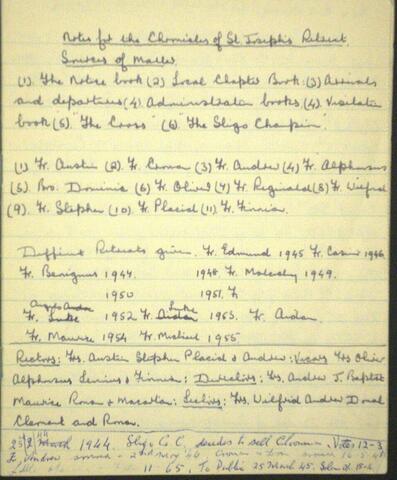 Notes for the Chronicles of St Joseph's Retreat.
Sources of Matter.
(1). The Notice book (2) Local Chapter Book (3) Arrivals
and departures (4). Administration books (4). Visitation
book (5) "The Cross" (6) "The Sligo Champion".
(1) Fr. Austin (2). Fr. Cronan (3) Fr. Andrew (4) Fr. Alphonsus
(5) Bro. Dominic (6) Fr. Oliver (7) Fr. Reginald (8) Fr. Wilfrid
(9). Fr. Stephen (10). Fr. Placid (11). Fr. Finnian.
Different Retreats given. Fr. Edmund 1945 Fr. Casimir 1946.
Fr. Benignus 1947. 1948 Fr. Malachy 1949.
1950 1951. Fr
Fr. Luke 1952 Fr. Aidan Luke 1953. Fr. Aidan.
Fr. Maurice 1954 Fr. Michael 1955.
Rectors: Frs. Austin Stephen Placid & Andrew: Vicars Frs Oliver
Alphonsus Finnian; Directors; Frs. Andrew J. Baptist
Maurice Ronan & Macartan: Lectors; Frs. Wilfrid Andrew Donal
Clement and Ronan.
1944. Sligo Co C. decides to sell Cloonma Votes 12-3
Fr. Andrew arrived 2nd May 46,
11 65, To Public 25 March 45.